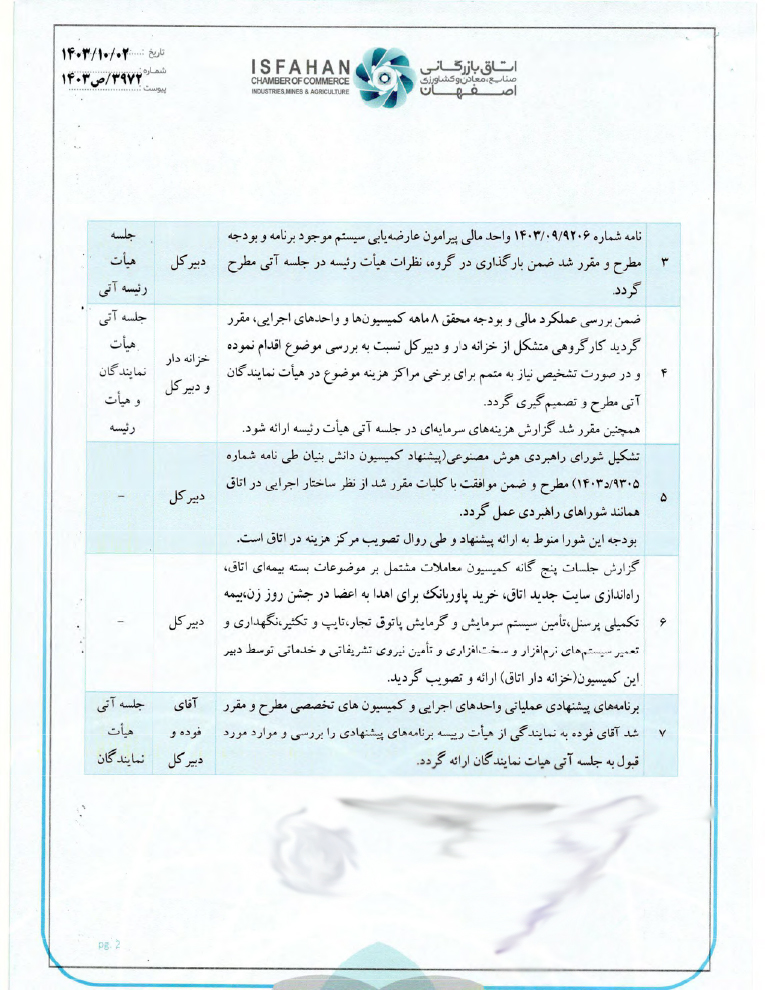 تاریخ :.....۱۴۰۳/۱۰/۰۲
شماره:
۳۹۷۲/ص/۱۴۰۳
پیوست:
ISFAHAN
CHAMBER OF COMMERCE
INDUSTRIES, MINES & AGRICULTURE
اتاق بازرگانی
صنایع، معادن و کشاورزی
اصفهان
۳
نامه شماره ۱۴۰۳/۰۹/۹۲۰۶ واحد مالی پیرامون عارضه‌یابی سیستم موجود برنامه و بودجه
مطرح و مقرر شد ضمن بارگذاری در گروه، نظرات هیأت رئیسه در جلسه آتی مطرح
گردد.
دبیرکل
جلسه
هیأت
رئیسه آتی
۴
ضمن بررسی عملکرد مالی و بودجه محقق ۸ ماهه کمیسیون‌ها و واحدهای اجرایی، مقرر
گردید کارگروهی متشکل از خزانه دار و دبیرکل نسبت به بررسی موضوع اقدام نموده
و در صورت تشخیص نیاز به متمم برای برخی مراکز هزینه موضوع در هیأت نمایندگان
آتی مطرح و تصمیم‌گیری گردد.
همچنین مقرر شد گزارش هزینه‌های سرمایه‌ای در جلسه آتی هیأت رئیسه ارائه شود.
خزانه دار
و دبیرکل
جلسه آتی
هیأت
نمایندگان
و هیأت
رئیسه
۵
تشکیل شورای راهبردی هوش مصنوعی(پیشنهاد کمیسیون دانش بنیان طی نامه شماره
۱۴۰۳/د/۹۳۰۵) مطرح و ضمن موافقت با کلیات مقرر شد از نظر ساختار اجرایی در اتاق
همانند شوراهای راهبردی عمل گردد.
بودجه این شورا منوط به ارائه پیشنهاد و طی روال تصویب مرکز هزینه در اتاق است.
دبیرکل
–
۶
گزارش جلسات پنج گانه کمیسیون معاملات مشتمل بر موضوعات بسته بیمه‌ای اتاق،
راه‌اندازی سایت جدید اتاق، خرید پاوربانک برای اهدا به اعضا در جشن روز زن،بیمه
تکمیلی پرسنل،تأمین سیستم سرمایش و گرمایش پاتوق تجار،تایپ و تکثیر،نگهداری و
تعمیر سیستم‌های نرم‌افزار و سخت‌افزاری و تأمین نیروی تشریفاتی و خدماتی توسط دبیر
این کمیسیون(خزانه دار اتاق) ارائه و تصویب گردید.
دبیرکل
–
۷
برنامه‌های پیشنهادی عملیاتی واحدهای اجرایی و کمیسیون های تخصصی مطرح و مقرر
شد آقای فوده به نمایندگی از هیأت رییسه برنامه‌های پیشنهادی را بررسی و موارد مورد
قبول به جلسه آتی هیات نمایندگان ارائه گردد.
آقای
فوده و
دبیرکل
جلسه آتی
هیأت
نمایندگان
pg. 2